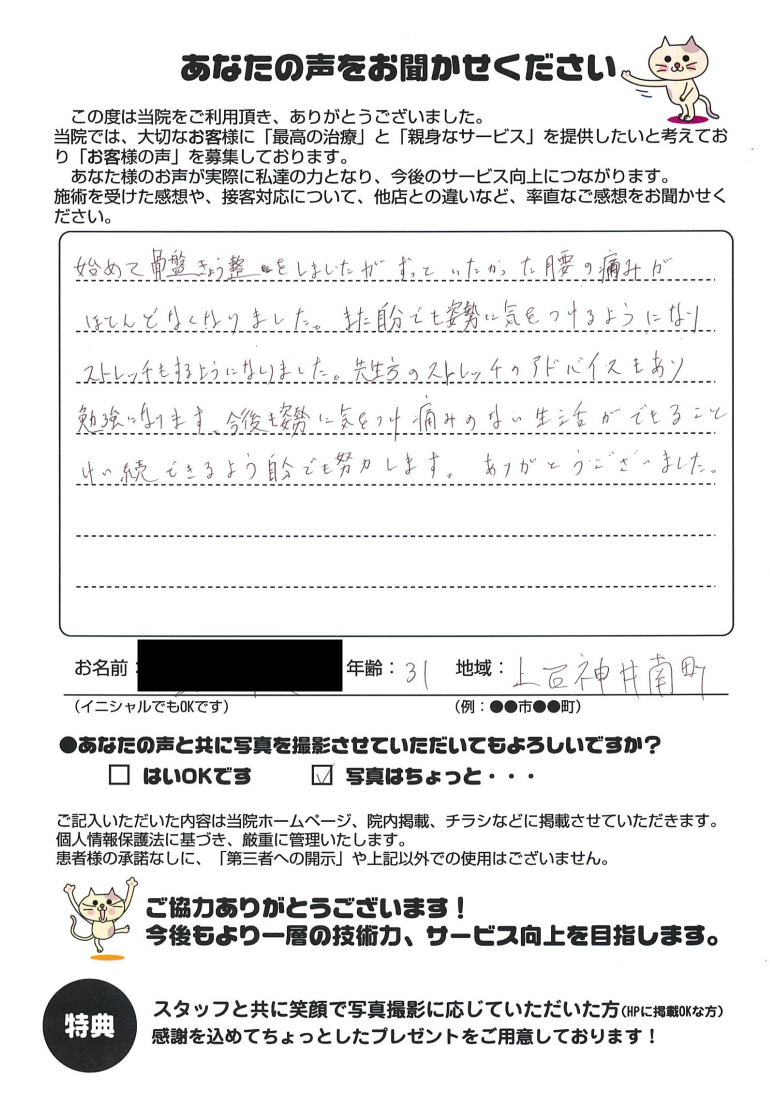 あなたの声をお聞かせください
この度は当院をご利用頂き、ありがとうございました。
当院では、大切なお客様に「最高の治療」と「親身なサービス」を提供したいと考えてお
り「お客様の声」を募集しております。
あなた様のお声が実際に私達の力となり、今後のサービス向上につながります。
施術を受けた感想や、接客対応について、他店との違いなど、率直なご感想をお聞かせく
ださい。
始めて骨盤きょう整をしましたがずっといたかった腰の痛みが
ほとんどなくなりました。また自分でも姿勢に気をつけるようになり
ストレッチもするようになりました。先生方のストレッチのアドバイスもあり
勉強になります。今後も姿勢に気をつけ痛みのない生活ができること
けい続できるよう自分でも努力します。ありがとうございました。
お名前： 年齢：31 地域：上石神井南町
（イニシャルでもOKです） （例：●●市●●町）
●あなたの声と共に写真を撮影させていただいてもよろしいですか？
□ はいOKです ☑ 写真はちょっと・・・
ご記入いただいた内容は当院ホームページ、院内掲載、チラシなどに掲載させていただきます。
個人情報保護法に基づき、厳重に管理いたします。
患者様の承諾なしに、「第三者への開示」や上記以外での使用はございません。
ご協力ありがとうございます！
今後もより一層の技術力、サービス向上を目指します。
特典
スタッフと共に笑顔で写真撮影に応じていただいた方（HPに掲載OKな方）
感謝を込めてちょっとしたプレゼントをご用意しております！